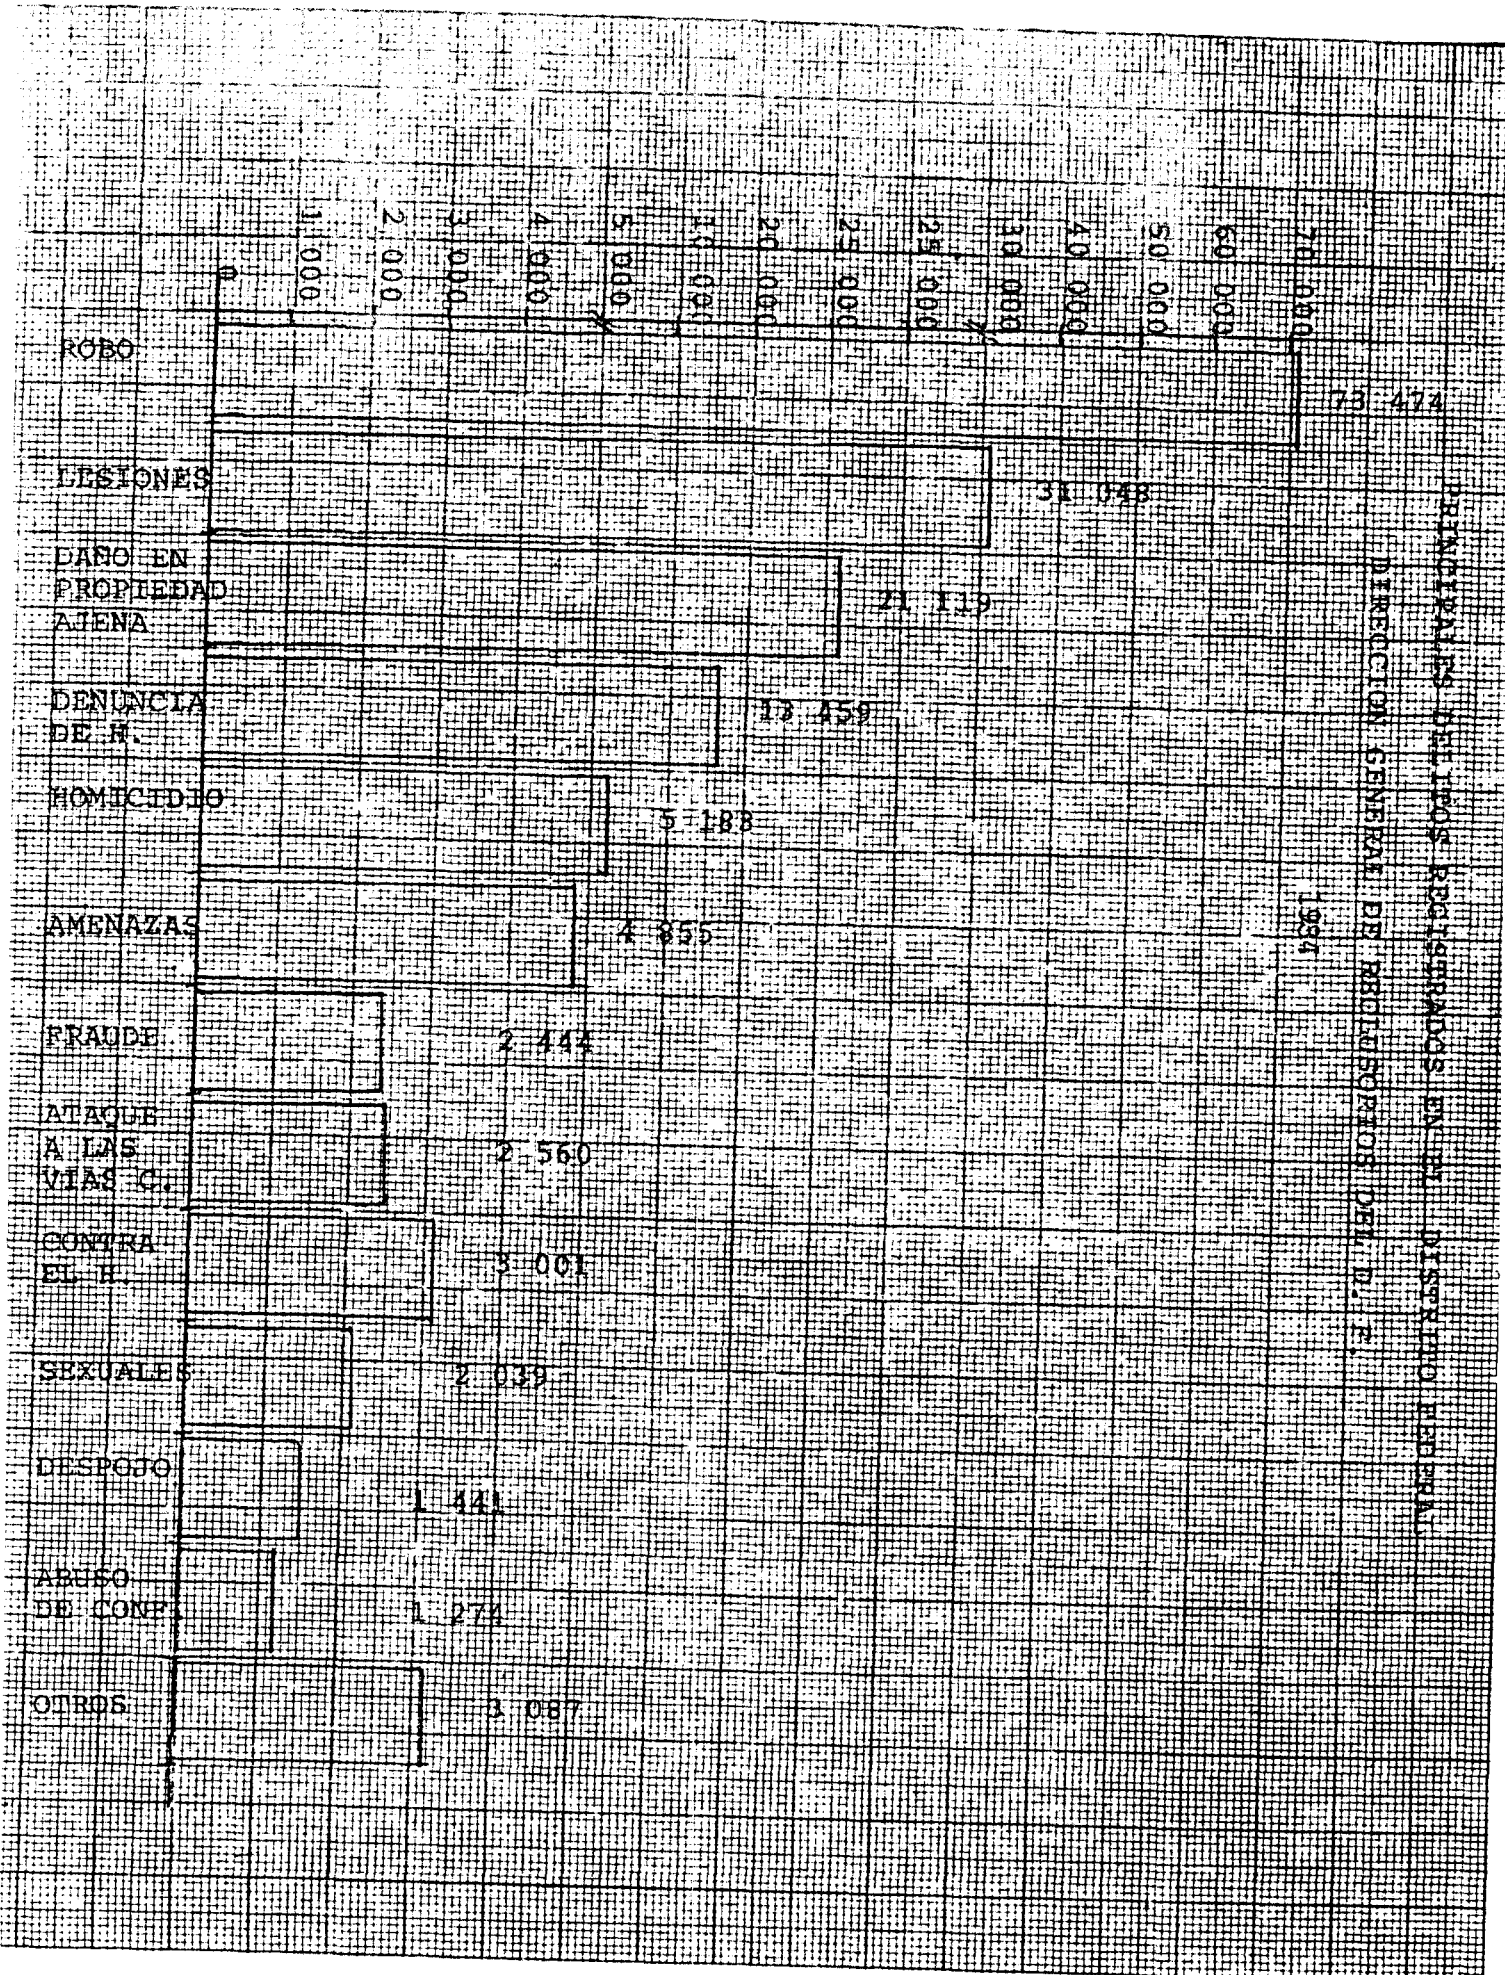 PRINCIPALES DELITOS REGISTRADOS EN EL DISTRITO FEDERAL
DIRECCION GENERAL DE RECLUSORIOS DEL D. F.
1984
70 000
60 000
50 000
40 000
30 000
25 000
25 000
20 000
10 000
5 000
4 000
3 000
2 000
1 000
0
ROBO
73 474
LESIONES
31 048
DAÑO EN
PROPIEDAD
AJENA
21 119
DENUNCIA
DE H.
13 459
HOMICIDIO
5 183
AMENAZAS
4 855
FRAUDE
2 444
ATAQUE
A LAS
VIAS C.
2 560
CONTRA
EL H.
3 001
SEXUALES
2 039
DESPOJO
1 441
ABUSO
DE CONF.
1 274
OTROS
3 087